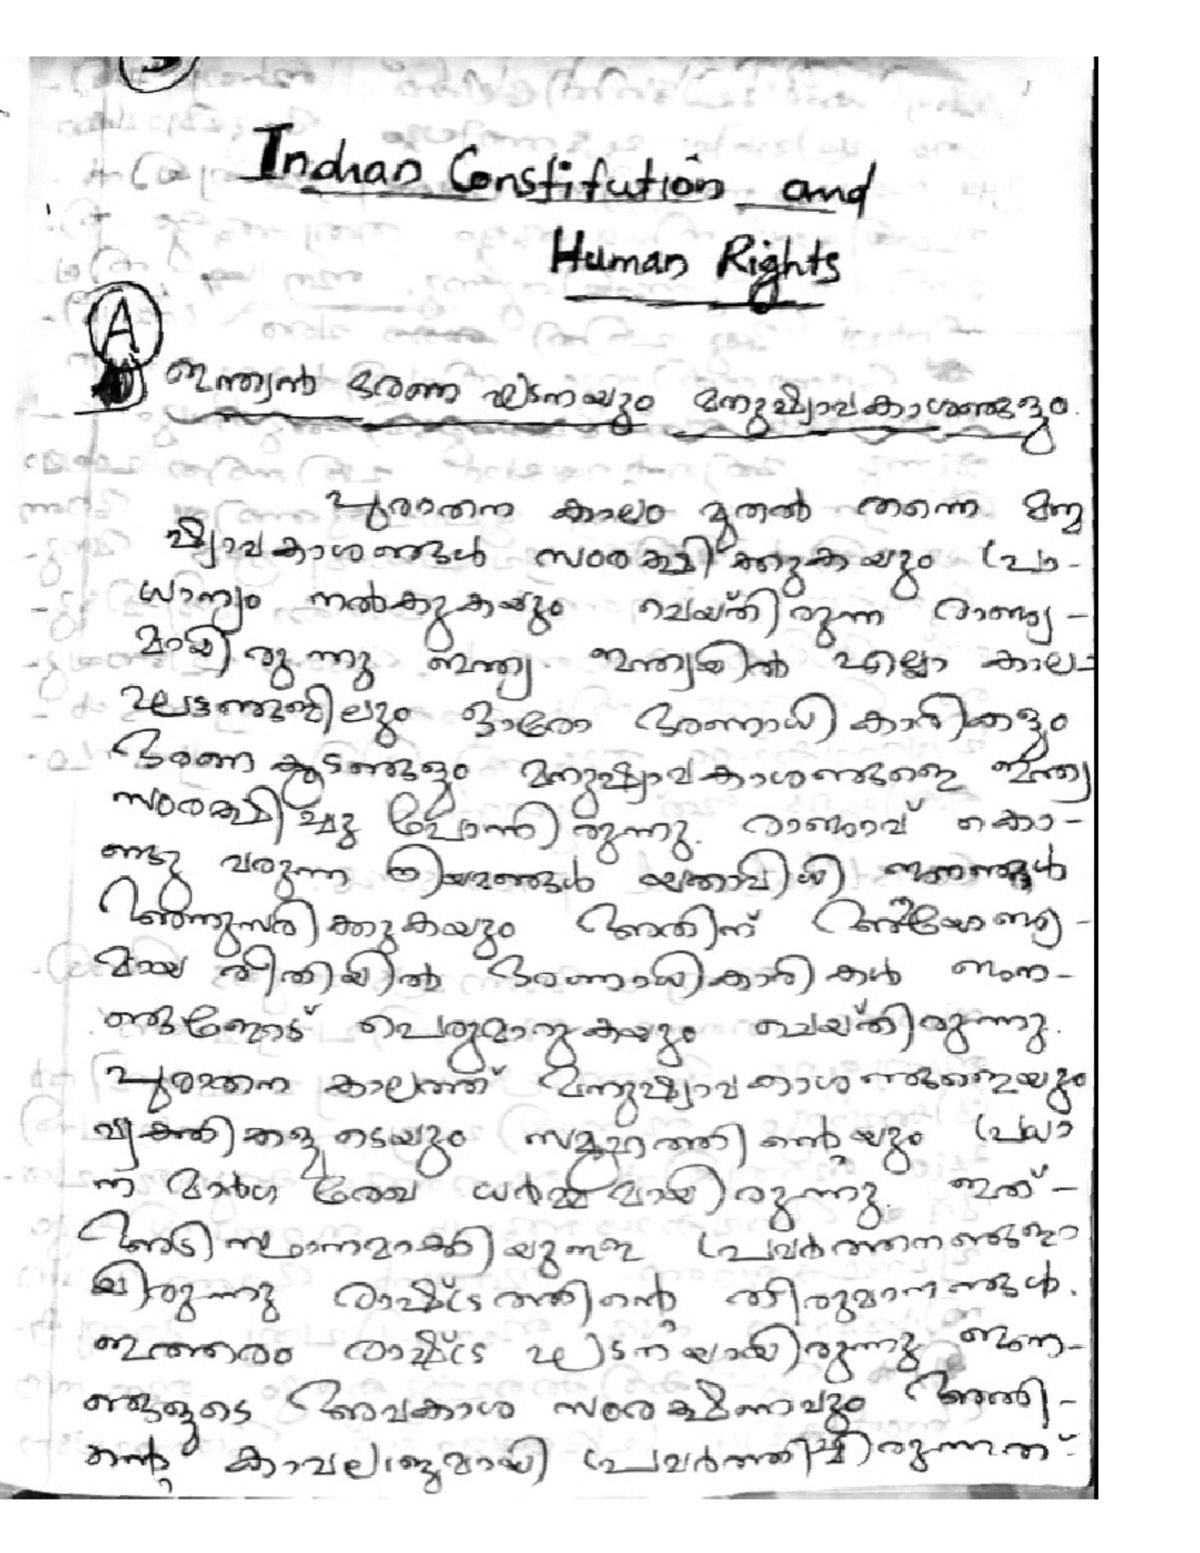 3
Indian Constitution and
Human Rights
A
ഇന്ത്യൻ ഭരണ ഘടനയും മനുഷ്യാവകാശങ്ങളും.
പുരാതന കാലം മുതൽ തന്നെ മനു
ഷ്യാവകാശങ്ങൾ സംരക്ഷിക്കുകയും പ്രാ-
ധാന്യം നൽകുകയും ചെയ്തിരുന്ന രാജ്യ-
മായിരുന്നു ഇന്ത്യ. ഇന്ത്യയിൽ എല്ലാ കാല-
ഘട്ടങ്ങളിലും ഓരോ ഭരണാധികാരികളും
ഭരണ കൂടങ്ങളും മനുഷ്യാവകാശങ്ങളെ ഇന്ത്യ
സംരക്ഷിച്ചു പോന്നിരുന്നു. രാജാവ് കൊ-
ണ്ടു വരുന്ന നിയമങ്ങൾ യഥാവിധി ജനങ്ങൾ
അനുസരിക്കുകയും അതിന് അനുയോജ്യ-
മായ രീതിയിൽ ഭരണാധികാരികൾ ജന-
ങ്ങളോട് പെരുമാറുകയും ചെയ്തിരുന്നു.
പുരാതന കാലത്ത് മനുഷ്യാവകാശങ്ങളെയും
വ്യക്തികളുടെയും സമൂഹത്തിന്റെയും പ്രധാ
ന മാർഗ രേഖ ധർമ്മമായിരുന്നു. ഇത്-
അടിസ്ഥാനമാക്കിയുളള പ്രവർത്തനങ്ങളാ
യിരുന്നു രാഷ്ട്രത്തിന്റെ തീരുമാനങ്ങൾ.
ഇത്തരം രാഷ്ട്ര ഘടനയായിരുന്നു ജന-
ങ്ങളുടെ അവകാശ സംരക്ഷണവും അതി-
ന്റെ കാവലാളുമായി പ്രവർത്തിച്ചിരുന്നത്.